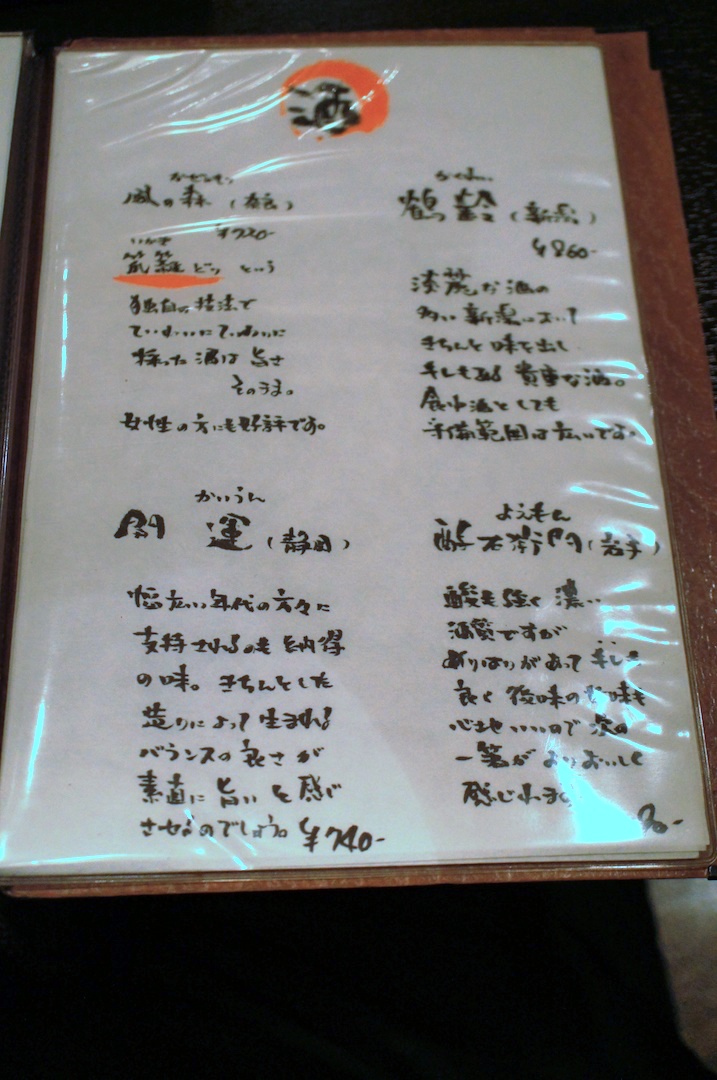 酒
かぜのもり
風の森（奈良）
¥720-
いかき
笊籬どり という
独自の技法で
ていねいにていねいに
採った酒は 旨さ
そのうま。
女性の方にも好評です。
かくれい
鶴齢（新潟）
¥860-
淡麗な酒の
多い新潟において
きちんと味を出し
キレもある 貴重な酒。
食中酒としても
守備範囲は広いです。
かいうん
開 運（静岡）
幅広い年代の方々に
支持されるのも納得
の味。きちんとした
造りによって生まれる
バランスの良さが
素直に 旨い と感じ
させるのでしょう。¥740-
よえもん
酔右衛門（岩手）
酸も強く 濃い
酒質ですが
めりはりがあって キレも
良く 後味の
心地いいので 次の
一箸がよりおいしく
感じれます
0-